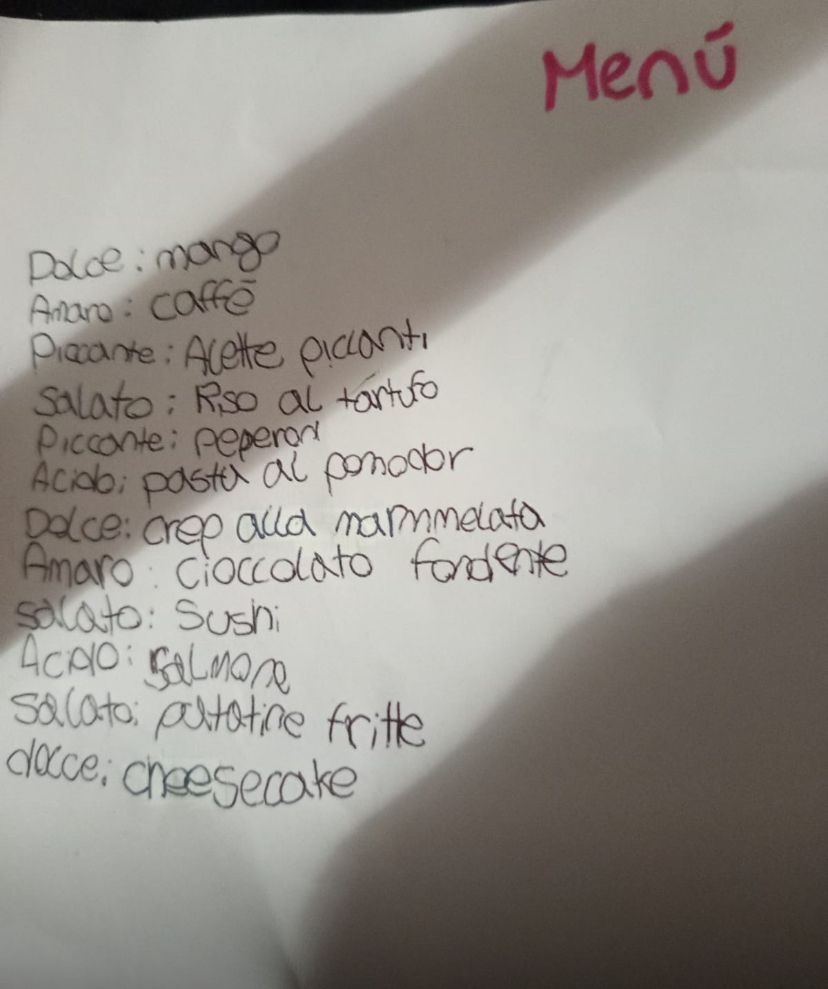 Menú
Dolce: mango
Amaro: caffē
Piccante: Alette piccanti
Salato: Riso al tartufo
Piccante: peperoni
Acido: pasta al pomodor
Dolce: crep alla marmmelata
Amaro: cioccolato fondente
salato: Sushi
Acido: salmone
salato: patatine fritte
dolce: cheesecake